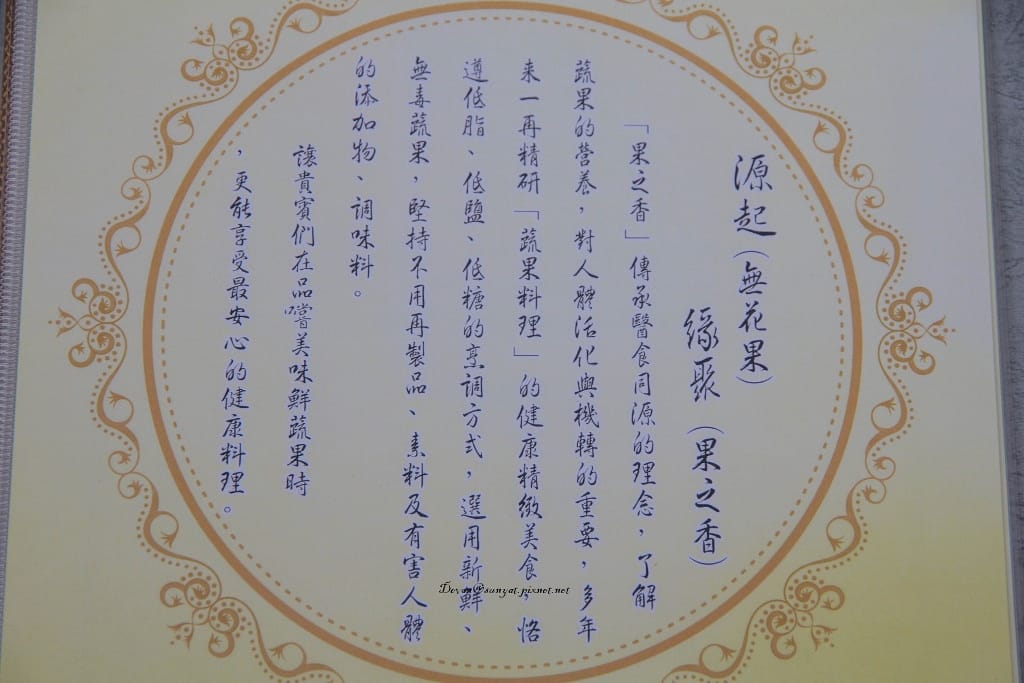 源起(無花果)
緣聚(果之香)
「果之香」傳承醫食同源的理念,了解
蔬果的營養,對人體活化與機轉的重要,多年
来一再精研「蔬果料理」的健康精緻美食,恪
遵低脂、低鹽、低糖的烹調方式,選用新鮮、
無毒蔬果,堅持不用再製品、素料及有害人體
的添加物、調味料。
讓貴賓們在品嚐美味鮮蔬果時
,更能享受最安心的健康料理。
Devan@sunyat.pixnet.net